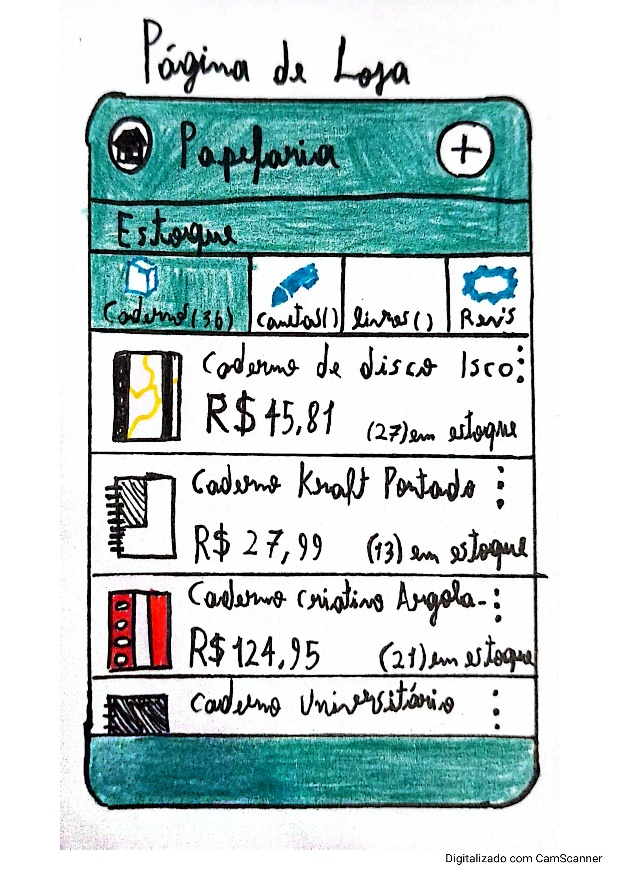 Página de Loja
Papelaria
+
Estoque
Caderno(36) canetas() livros() Revis
Caderno de disco Isco
R$ 45,81 (27) em estoque
Caderno Kraft Pontado
R$ 27,99 (13) em estoque
Caderno criativo Argola-
R$ 124,95 (21) em estoque
Caderno Universitário
Digitalizado com CamScanner